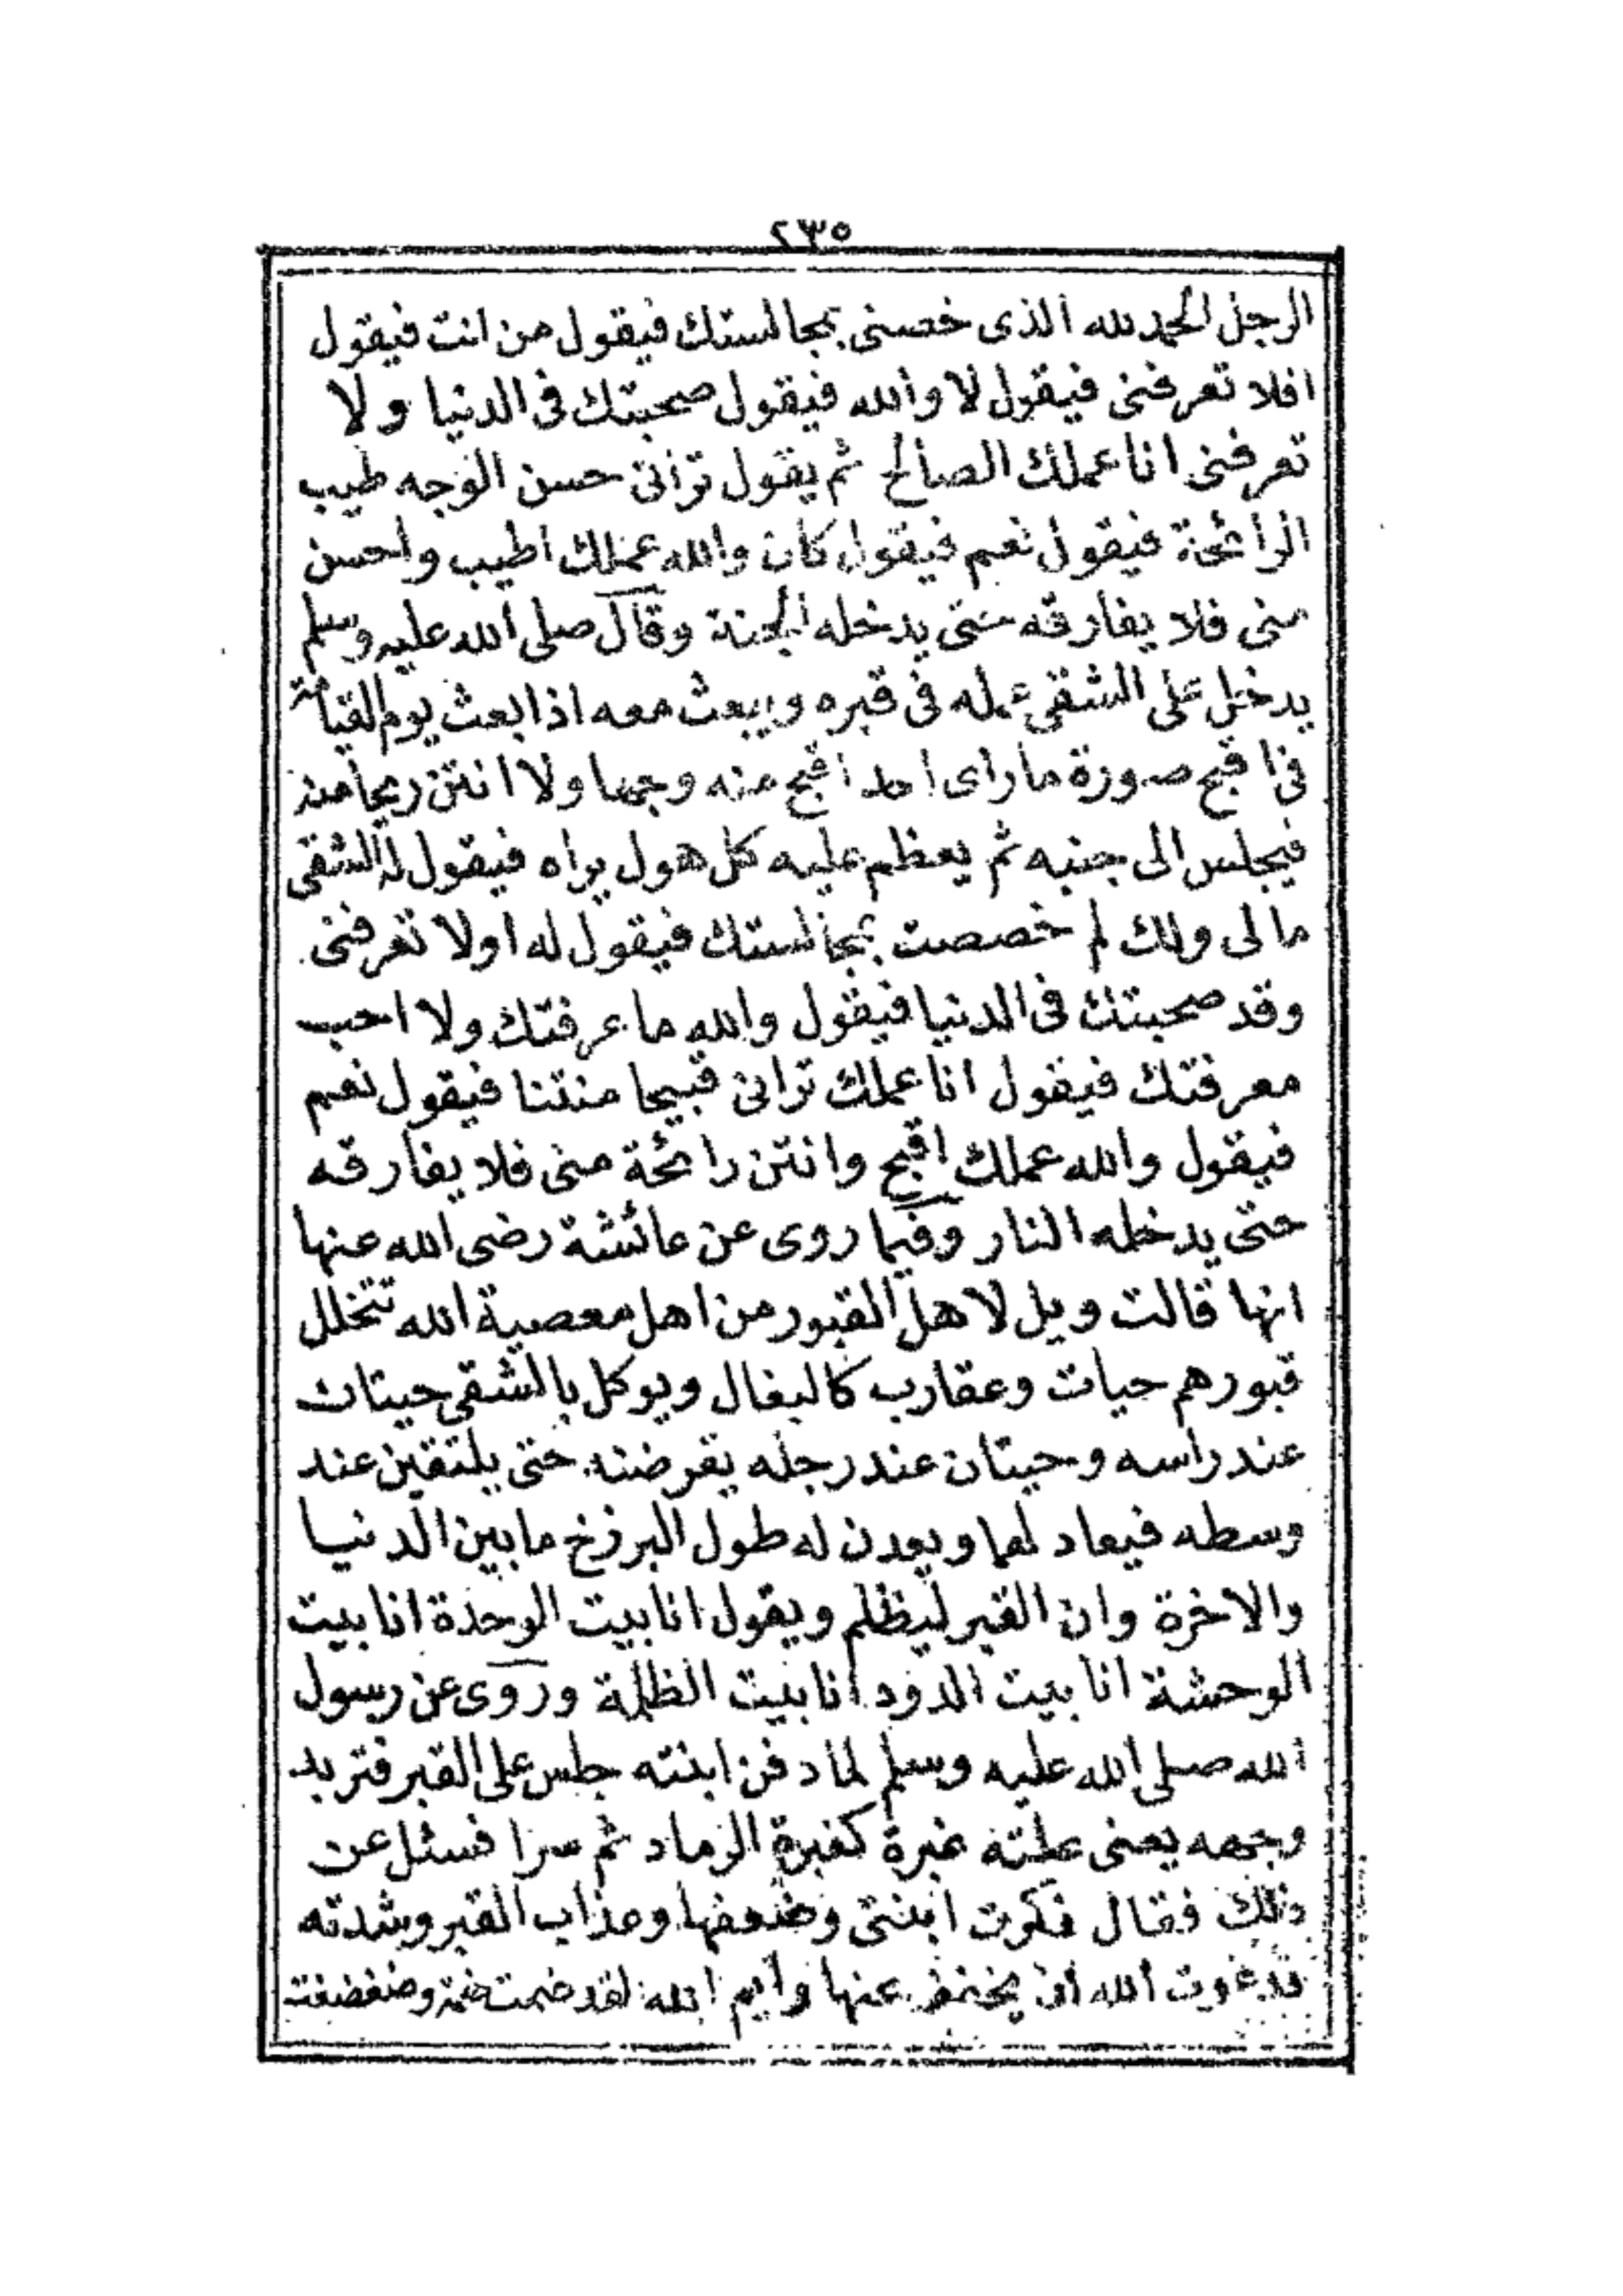 ٢٣٥
الرجل الحمد لله الذى خصنى بمجالستك فيقول من انت فيقول
افلا تعرفنى فيقول لا والله فيقول صحبتك فى الدنيا ولا
تعرفنى انا عملك الصالح ثم يقول ترانى حسن الوجه طيب
الرائحة فيقول نعم فيقول كان والله عملك اطيب واحسن
منى فلا يفارقه حتى يدخله الجنة وقال صلى الله عليه وسلم
يدخل على الشقى عمله فى قبره ويبعث معه اذا بعث يوم القيامة
فى اقبح صورة ما راى احد اقبح منه وجها ولا انتن ريحا منه
فيجلس الى جنبه ثم يعظم عليه كل هول يراه فيقول له الشقى
ما لى ولك لم خصصت بمجالستك فيقول له اولا تعرفنى
وقد صحبتك فى الدنيا فيقول والله ما عرفتك ولا احب
معرفتك فيقول انا عملك ترانى قبيحا منتنا فيقول نعم
فيقول والله عملك اقبح وانتن رائحة منى فلا يفارقه
حتى يدخله النار وفيما روى عن عائشة رضى الله عنها
انها قالت ويل لاهل القبور من اهل معصية الله تتخلل
قبورهم حيات وعقارب كالبغال ويوكل بالشقى حيتان
عند راسه وحيتان عند رجله يقرضنه حتى يلتقين عند
وسطه فيعاد لهما ويعدن له طول البرزخ ما بين الدنيا
والاخرة وان القبر ليظلم ويقول انا بيت الوحدة انا بيت
الوحشة انا بيت الدود انا بيت الظلمة وروى عن رسول
الله صلى الله عليه وسلم لما دفن ابنته جلس على القبر فتربد
وجهه يعنى علته غبرة كغبرة الرماد ثم سرا فسئل عن
ذلك فقال ذكرت ابنتى وضعفها وعذاب القبر وشدته
فدعوت الله ان يخفف عنها وايم الله لقد ضمت ضمة وضغضغت